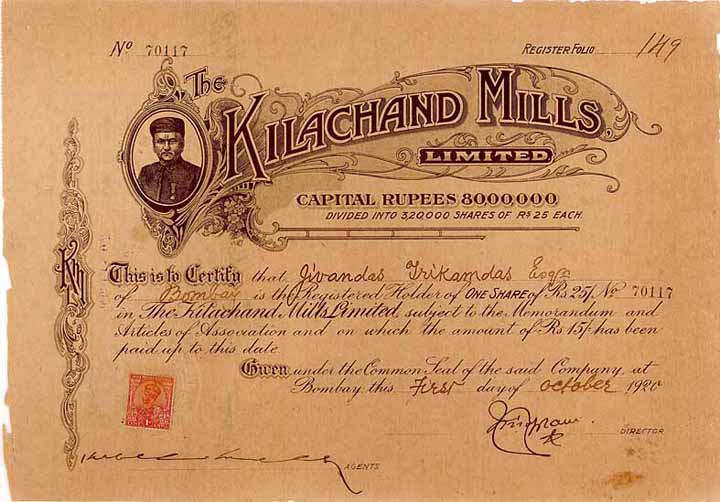 No 70117
REGISTER FOLIO 149
THE
KILACHAND MILLS,
LIMITED
CAPITAL RUPEES 80,00,000,
DIVIDED INTO 3,20,000 SHARES OF RS 25 EACH.
This is to Certify that Jivandas Trikamdas Esqr
of Bombay is the Registered Holder of ONE SHARE of Rs 25/- No 70117
in The Kilachand Mills Limited subject to the Memorandum and
Articles of Association and on which the amount of Rs 15/- has been
paid up to this date.
Given under the Common Seal of the said Company, at
Bombay, this First day of October 1920
DIRECTOR
AGENTS